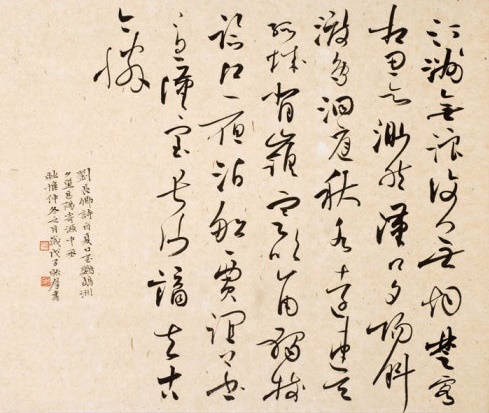 汀洲無浪復無煙楚客
相思益渺然漢口夕陽斜
渡鳥洞庭秋水遠連天
孤城背嶺寒吹角獨戍
臨江夜泊船賈誼上書
憂漢室長沙謫去古
今憐
劉長卿詩自夏口至鸚鵡洲
夕望岳陽寄源中丞
惟仲冬之月歲戊子書